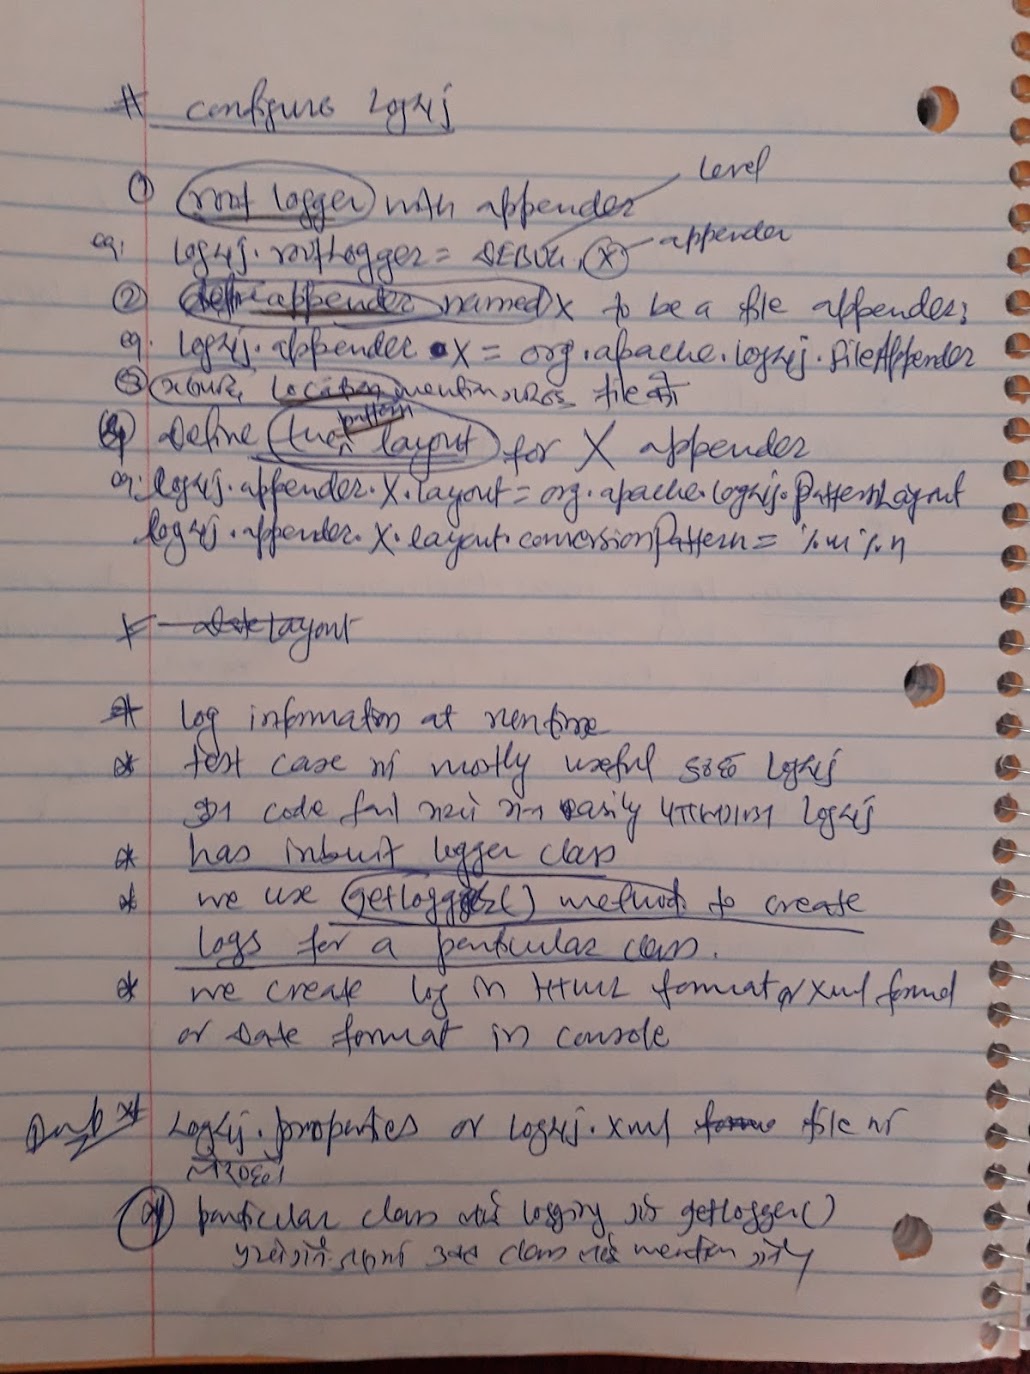 # configure Log4j
① root logger with appender
Level
eg. log4j.rootLogger = DEBUG, X
appender
② define appender named X to be a file appender;
eg. log4j.appender.X = org.apache.log4j.FileAppender
③ location mention file
④ Define the pattern layout for X appender
eg. log4j.appender.X.layout = org.apache.log4j.PatternLayout
log4j.appender.X.layout.conversionPattern = %m%n
Layout
* log information at runtime
* test case mostly useful log4j
code fail easily log4j
* has inbuilt logger class
* we use getlogger() method to create
logs for a particular class.
* we create log in HTML format or xml format
or Date format in console
* Log4j.properties or log4j.xml file
particular class logging getlogger()
class mention